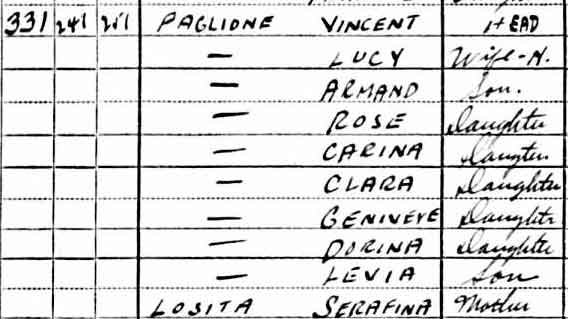 331 241 251 PAGLIONE VINCENT HEAD
— LUCY Wife-H.
— ARMAND Son.
— ROSE Daughter
— CARINA Daugter
— CLARA Daughter
— GENIVEVE Daughter
— DORINA Daughter
— LEVIA Son
LOSITA SERAFINA Mother